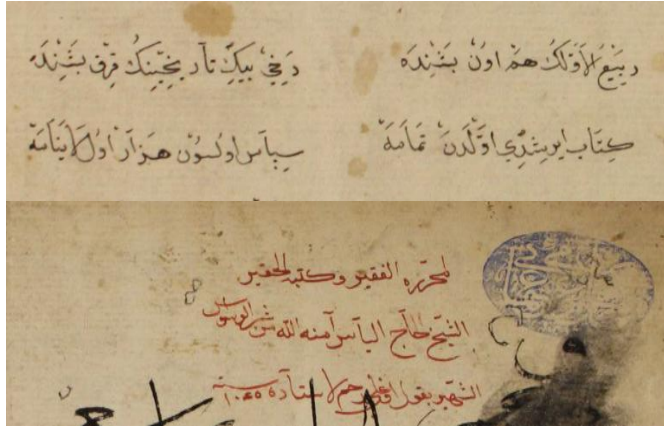 ربيع الاولك هم اون بشنده دخي بيك تاريخينك قرق بشنده
كتاب ايرشدي اولدن تمامه سپاس اولسون هزار اول لاينامه
لمحرره الفقير وكتبه الحقير
الشيخ حاج الياس آمنه الله من شر الوسواس
الشهير بقول اوغلي سنه ١٠٤٥